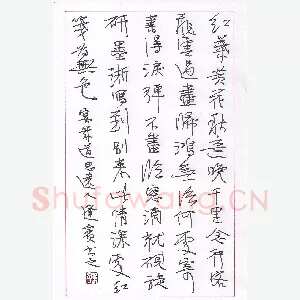 紅葉黃花秋意晚千里念行客
飛雲過盡歸鴻無信何處寄
書得淚彈不盡臨窗滴就硯旋
研墨漸寫到別來此情深處紅
箋為無色 晏幾道思遠人 書之
Shufawang.CN